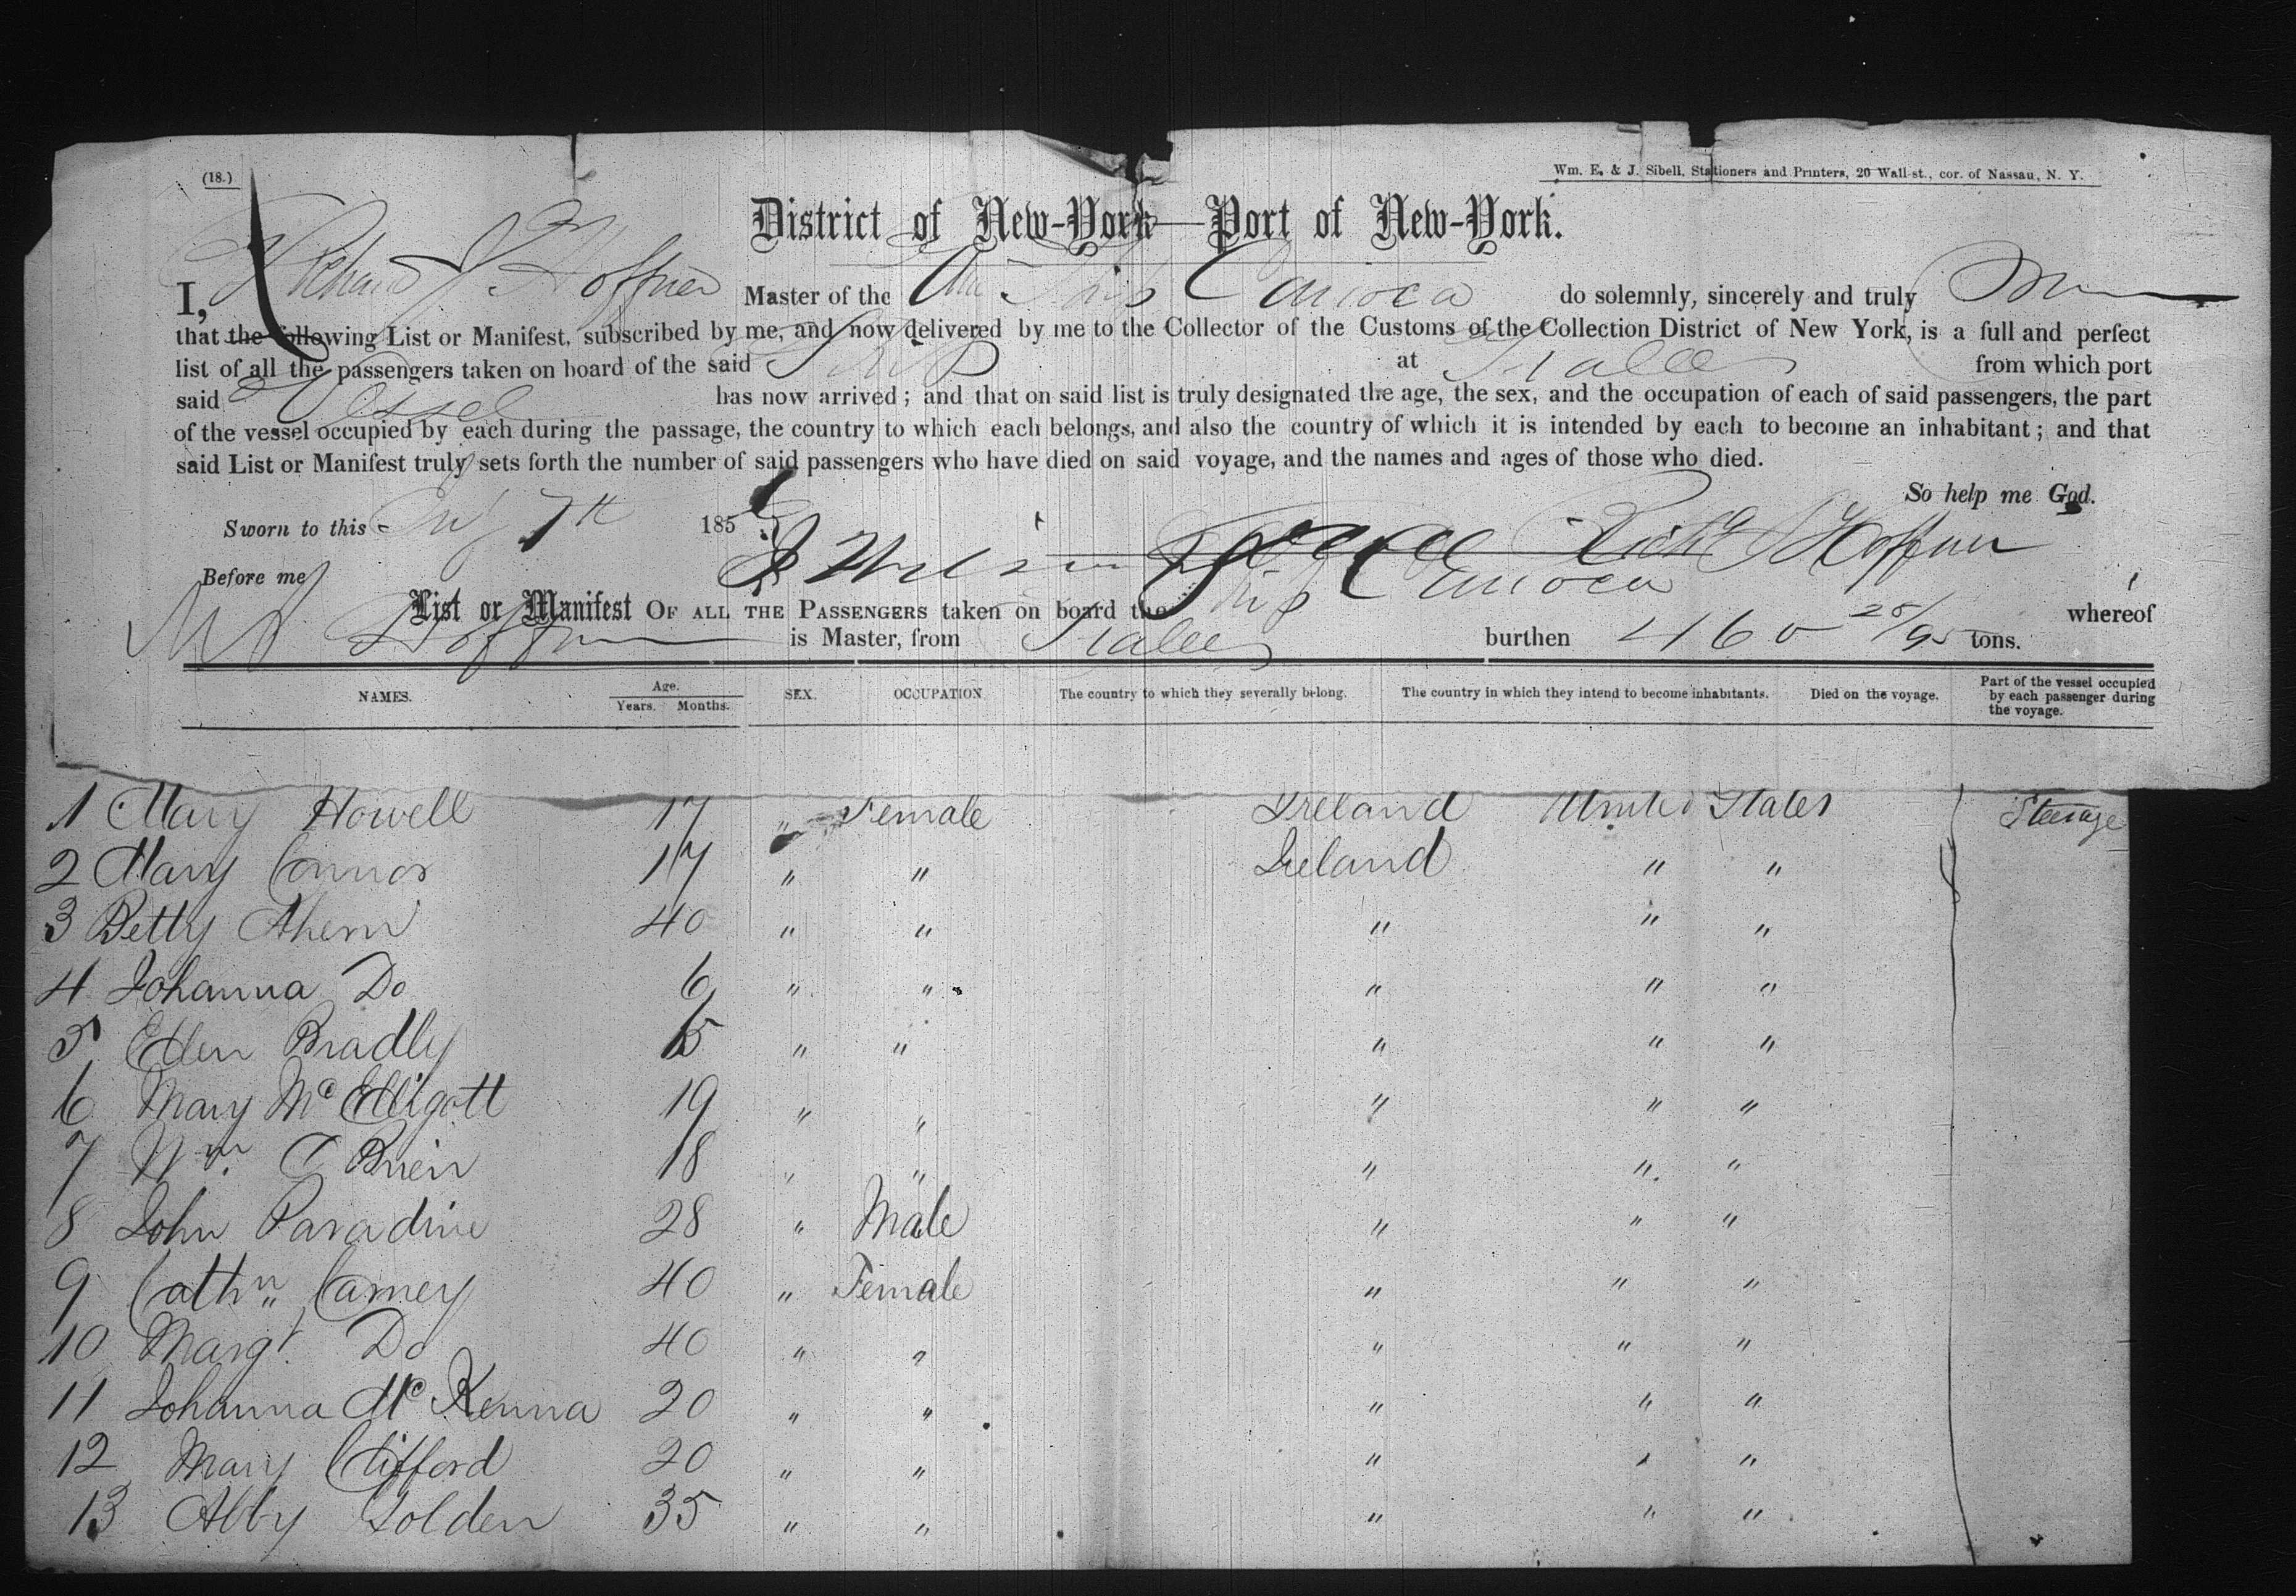 (18.)
Wm. E. & J. Sibell, Stationers and Printers, 20 Wall-st., cor. of Nassau, N. Y.
District of New-York—Port of New-York.
I, Richard J Hoffner Master of the Ship Carioca do solemnly, sincerely and truly
that the following List or Manifest, subscribed by me, and now delivered by me to the Collector of the Customs of the Collection District of New York, is a full and perfect
list of all the passengers taken on board of the said Ship at Tralee from which port
said Vessel has now arrived; and that on said list is truly designated the age, the sex, and the occupation of each of said passengers, the part
of the vessel occupied by each during the passage, the country to which each belongs, and also the country of which it is intended by each to become an inhabitant; and that
said List or Manifest truly sets forth the number of said passengers who have died on said voyage, and the names and ages of those who died.
So help me God.
Sworn to this 7th 185
Richd J Hoffner
Before me
List or Manifest OF ALL THE PASSENGERS taken on board the Ship Carioca whereof
Hoffner is Master, from Tralee burthen 460 /95 tons.
NAMES. Age. Years. Months. SEX. OCCUPATION. The country to which they severally belong. The country in which they intend to become inhabitants. Died on the voyage. Part of the vessel occupied by each passenger during the voyage.
1 Mary Howell 17 " Female Ireland United States Steerage
2 Mary Connor 17 " " Ireland " "
3 Betty Ahern 40 " " " " "
4 Johanna Do 6 " " " " "
5 Ellen Bradly 15 " " " " "
6 Mary McElligott 19 " " " " "
7 Wm O Brien 18 " " " " "
8 John Paradine 28 " Male " " "
9 Cathn Carney 40 " Female " " "
10 Margt Do 40 " " " " "
11 Johanna McKenna 20 " " " " "
12 Mary Clifford 20 " " " " "
13 Abby Golden 35 " " " " "